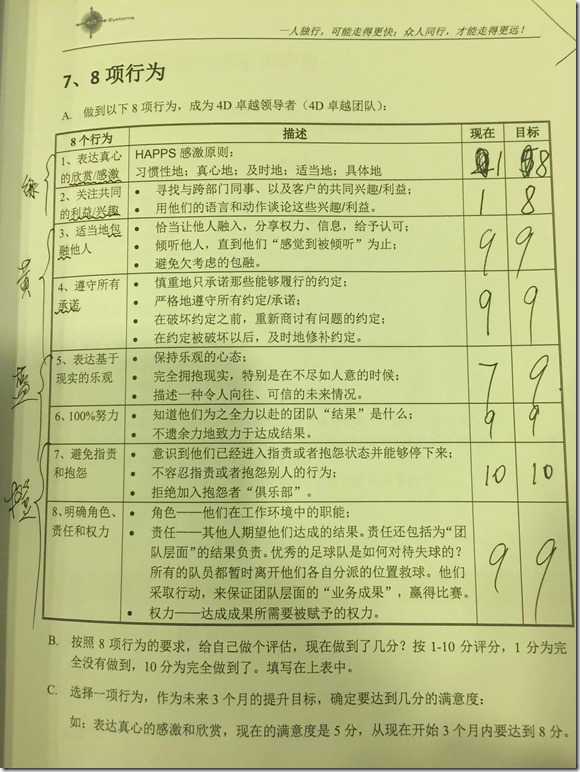 Systems
一人独行，可能走得更快；众人同行，才能走得更远！
7、8 项行为
A. 做到以下 8 项行为，成为 4D 卓越领导者（4D 卓越团队）：
8 个行为 描述 现在 目标
1、表达真心的欣赏/感激
HAPPS 感激原则：
习惯性地；真心地；及时地；适当地；具体地
1 8
绿
2、关注共同的利益/兴趣
• 寻找与跨部门同事、以及客户的共同兴趣/利益；
• 用他们的语言和动作谈论这些兴趣/利益。
1 8
3、适当地包融他人
• 恰当让他人融入，分享权力、信息，给予认可；
• 倾听他人，直到他们“感觉到被倾听”为止；
• 避免欠考虑的包融。
9 9
黄
4、遵守所有承诺
• 慎重地只承诺那些能够履行的约定；
• 严格地遵守所有约定/承诺；
• 在破坏约定之前，重新商讨有问题的约定；
• 在约定被破坏以后，及时地修补约定。
9 9
5、表达基于现实的乐观
• 保持乐观的心态；
• 完全拥抱现实，特别是在不尽如人意的时候；
• 描述一种令人向往、可信的未来情况。
7 9
蓝
6、100%努力
• 知道他们为之全力以赴的团队“结果”是什么；
• 不遗余力地致力于达成结果。
9 9
7、避免指责和抱怨
• 意识到他们已经进入指责或者抱怨状态并能够停下来；
• 不容忍指责或者抱怨别人的行为；
• 拒绝加入抱怨者“俱乐部”。
10 10
橙
8、明确角色、责任和权力
• 角色——他们在工作环境中的职能；
• 责任——其他人期望他们达成的结果。责任还包括为“团
队层面”的结果负责。优秀的足球队是如何对待失球的？
所有的队员都暂时离开他们各自分派的位置救球。他们
采取行动，来保证团队层面的“业务成果”，赢得比赛。
• 权力——达成成果所需要被赋予的权力。
9 9
B. 按照 8 项行为的要求，给自己做个评估，现在做到了几分？按 1-10 分评分，1 分为完
全没有做到，10 分为完全做到了。填写在上表中。
C. 选择一项行为，作为未来 3 个月的提升目标，确定要达到几分的满意度：
如：表达真心的感激和欣赏，现在的满意度是 5 分，从现在开始 3 个月内要达到 8 分。